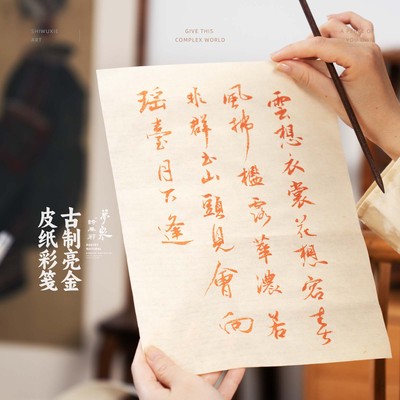 SHIWUXIE
ART
GIVE THIS
COMPLEX WORLD
A PIECE OF
雲想衣裳花想容春
風拂檻露華濃若
非群玉山頭見會向
瑤臺月下逢
古制亮金
皮纸彩笺